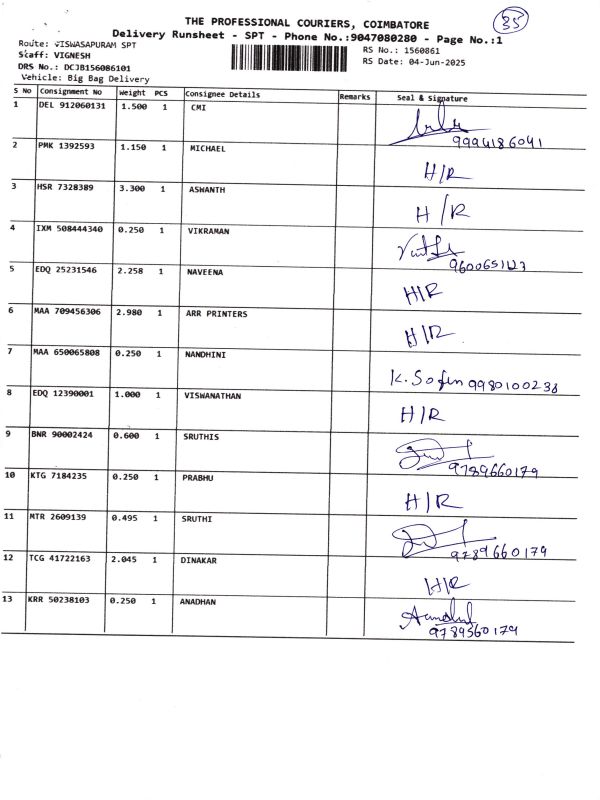 35
THE PROFESSIONAL COURIERS, COIMBATORE
Delivery Runsheet - SPT - Phone No.:9047080280 - Page No.:1
Route: VISWASAPURAM SPT
Staff: VIGNESH
DRS No.: DCJB156086101
Vehicle: Big Bag Delivery
RS No.: 1560861
RS Date: 04-Jun-2025
S No Consignment No Weight PCS Consignee Details Remarks Seal & Signature
1 DEL 912060131 1.500 1 CMI
9994186041
2 PMK 1392593 1.150 1 MICHAEL H/R
3 HSR 7328389 3.300 1 ASWANTH H/R
4 IXM 508444340 0.250 1 VIKRAMAN
9600651123
5 EDQ 25231546 2.258 1 NAVEENA H/R
6 MAA 709456306 2.980 1 ARR PRINTERS H/R
7 MAA 650065808 0.250 1 NANDHINI K. 9980100238
8 EDQ 12390001 1.000 1 VISWANATHAN H/R
9 BNR 90002424 0.600 1 SRUTHIS
9789660179
10 KTG 7184235 0.250 1 PRABHU H/R
11 MTR 2609139 0.495 1 SRUTHI
9789660179
12 TCG 41722163 2.045 1 DINAKAR H/R
13 KRR 50238103 0.250 1 ANADHAN
9789560179